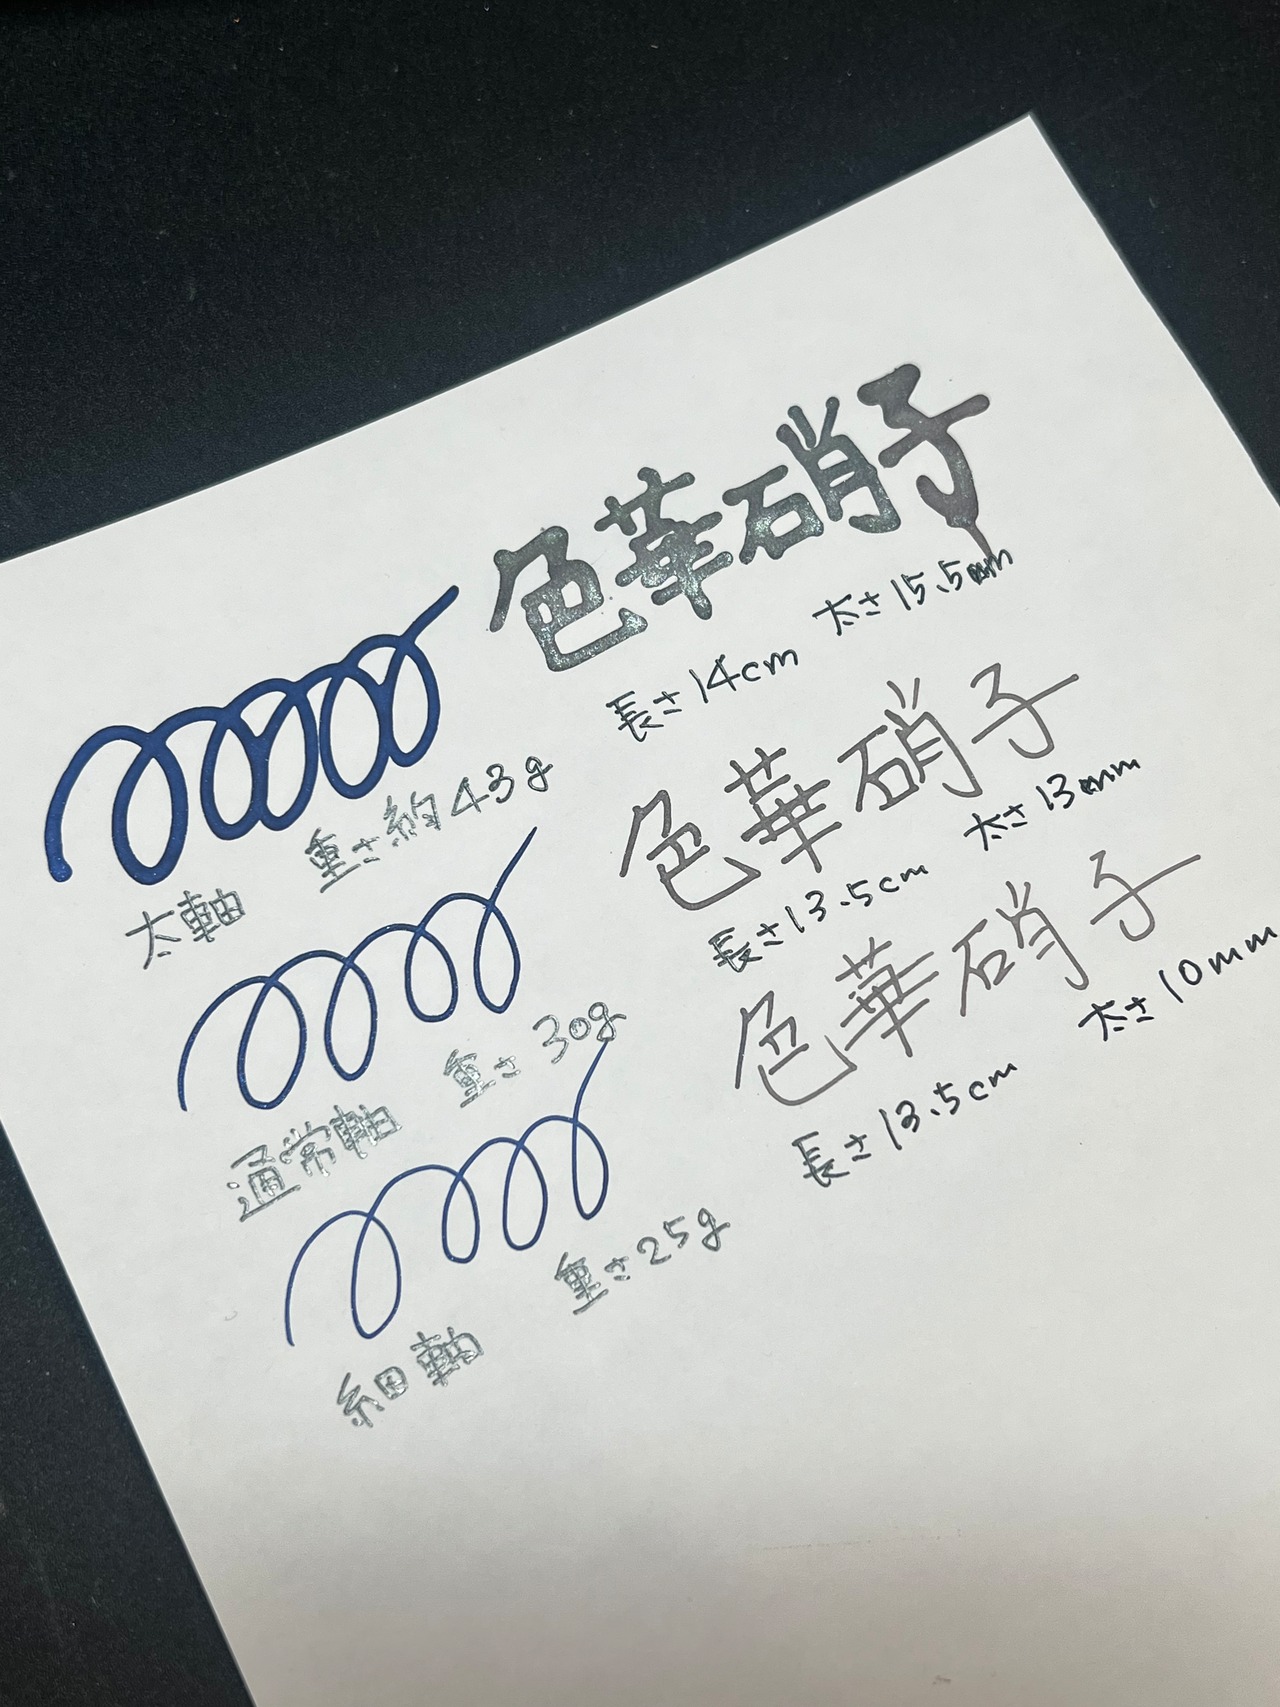 色華硝子
長さ14cm 太さ15.5mm
太軸 重さ約43g
色華硝子
長さ13.5cm 太さ13mm
通常軸 重さ30g
色華硝子
長さ13.5cm 太さ10mm
細軸 重さ25g